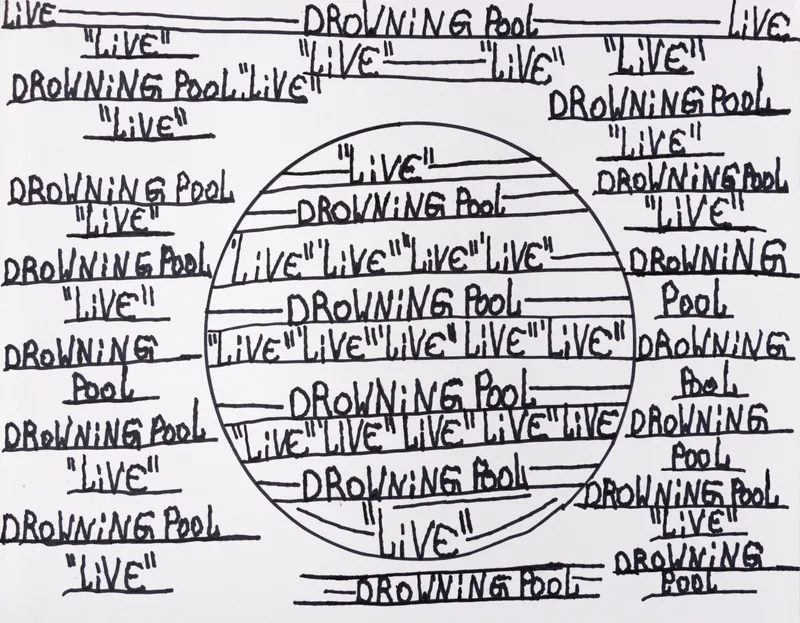 LiVE DROWNiNG POOL LiVE
"LiVE" "LiVE" "LiVE" "LiVE"
DROWNiNG POOL "LiVE"
"LiVE"
DROWNiNG POOL
"LiVE"
DROWNiNG POOL
"LiVE"
DROWNiNG
POOL
DROWNiNG POOL
"LiVE"
DROWNiNG POOL
"LiVE"
"LiVE"
DROWNiNG POOL
"LiVE" "LiVE" "LiVE" "LiVE"
DROWNiNG POOL
"LiVE" "LiVE" "LiVE" "LiVE" "LiVE"
DROWNiNG POOL
"LiVE" "LiVE" "LiVE" "LiVE" "LiVE
DROWNiNG POOL
"LiVE"
DROWNiNG POOL
DROWNiNG POOL
"LiVE"
DROWNiNG POOL
"LiVE"
DROWNiNG
POOL
DROWNiNG
POOL
DROWNiNG
POOL
DROWNiNG POOL
"LiVE"
DROWNiNG
POOL